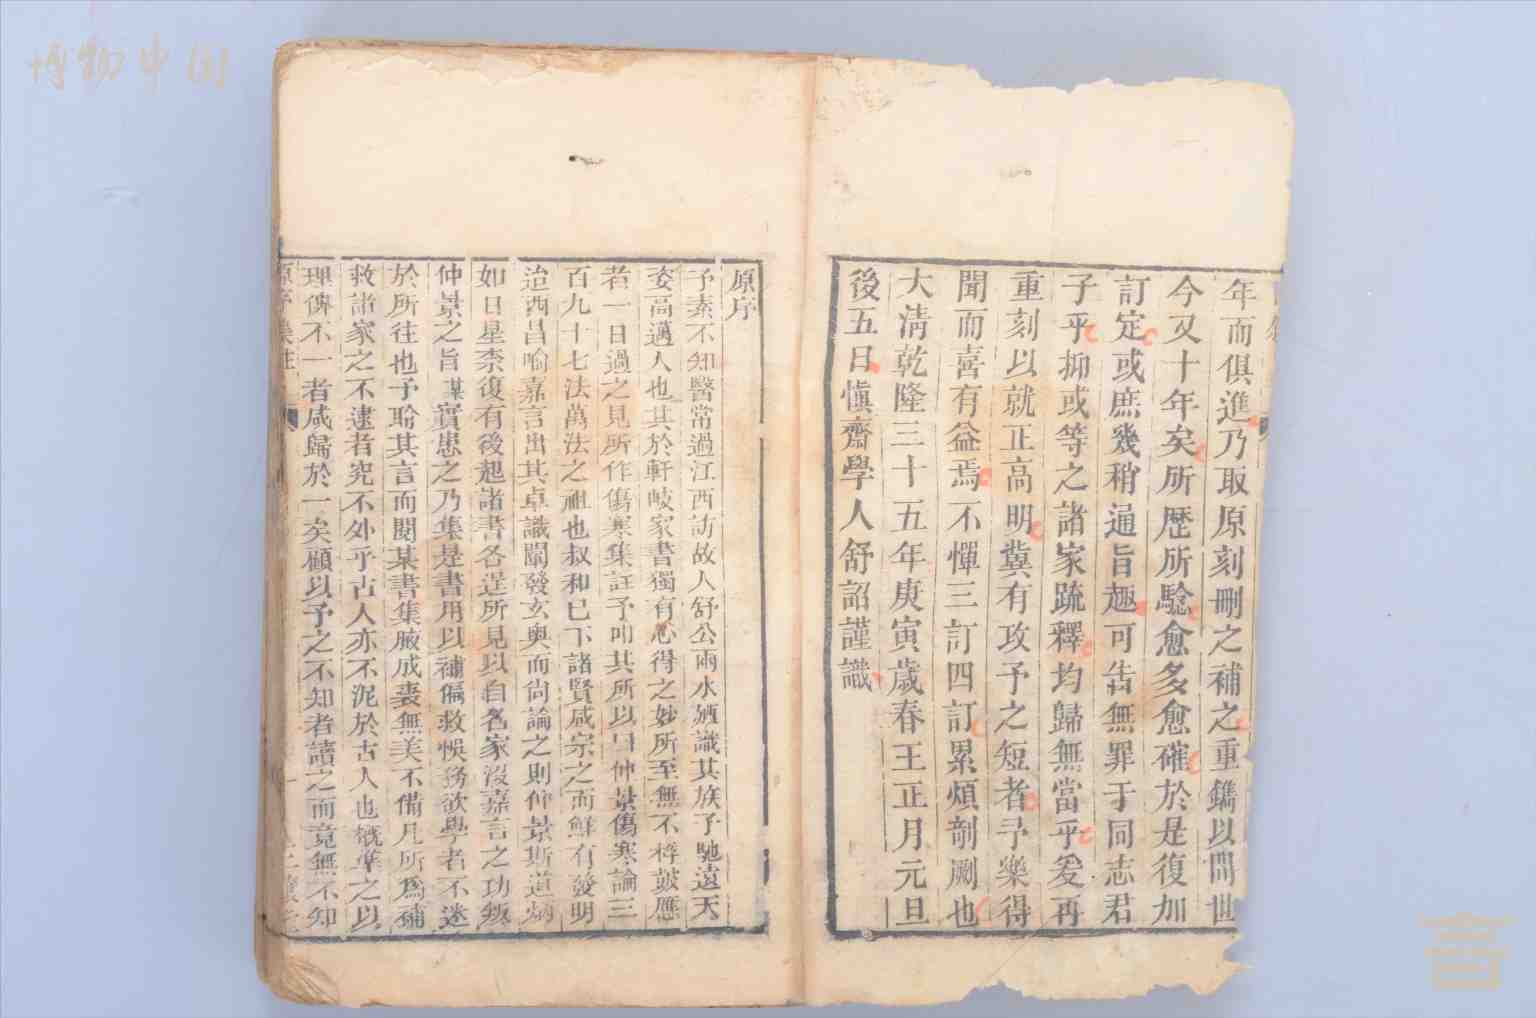 年而俱進乃取原刻刪之補之重鐫以問世
今又十年矣所歷所驗愈多愈確於是復加
訂定或庶幾稍通旨趣可告無罪于同志君
子乎抑或等之諸家疏釋均歸無當乎爰再
重刻以就正高明冀有攻予之短者予樂得
聞而喜有益焉不憚三訂四訂累煩剞劂也
大清乾隆三十五年庚寅歲春王正月元旦
後五日慎齋學人舒詔謹識
原序
予素不知醫常過江西訪故人舒公兩水廼識其族子馳遠天
姿高邁人也其於軒岐家書獨有心得之妙所至無不桴鼓應
者一日過之見所作傷寒集註予叩其所以曰仲景傷寒論三
百九十七法萬法之祖也叔和已下諸賢咸宗之而鮮有發明
迨西昌喻嘉言出其卓識闡發玄奧而尚論之則仲景斯道炳
如日星柰復有後起諸書各逞所見以自名家沒嘉言之功叛
仲景之旨謀實患之乃集是書用以補偏救悞務欲學者不迷
於所往也予聆其言而閱某書集腋成裘無美不備凡所為補
救諸家之不逮者究不外乎古人亦不泥於古人也概準之以
理俾不一者咸歸於一矣顧以予之不知者讀之而竟無不知
原序 集註
博物中国